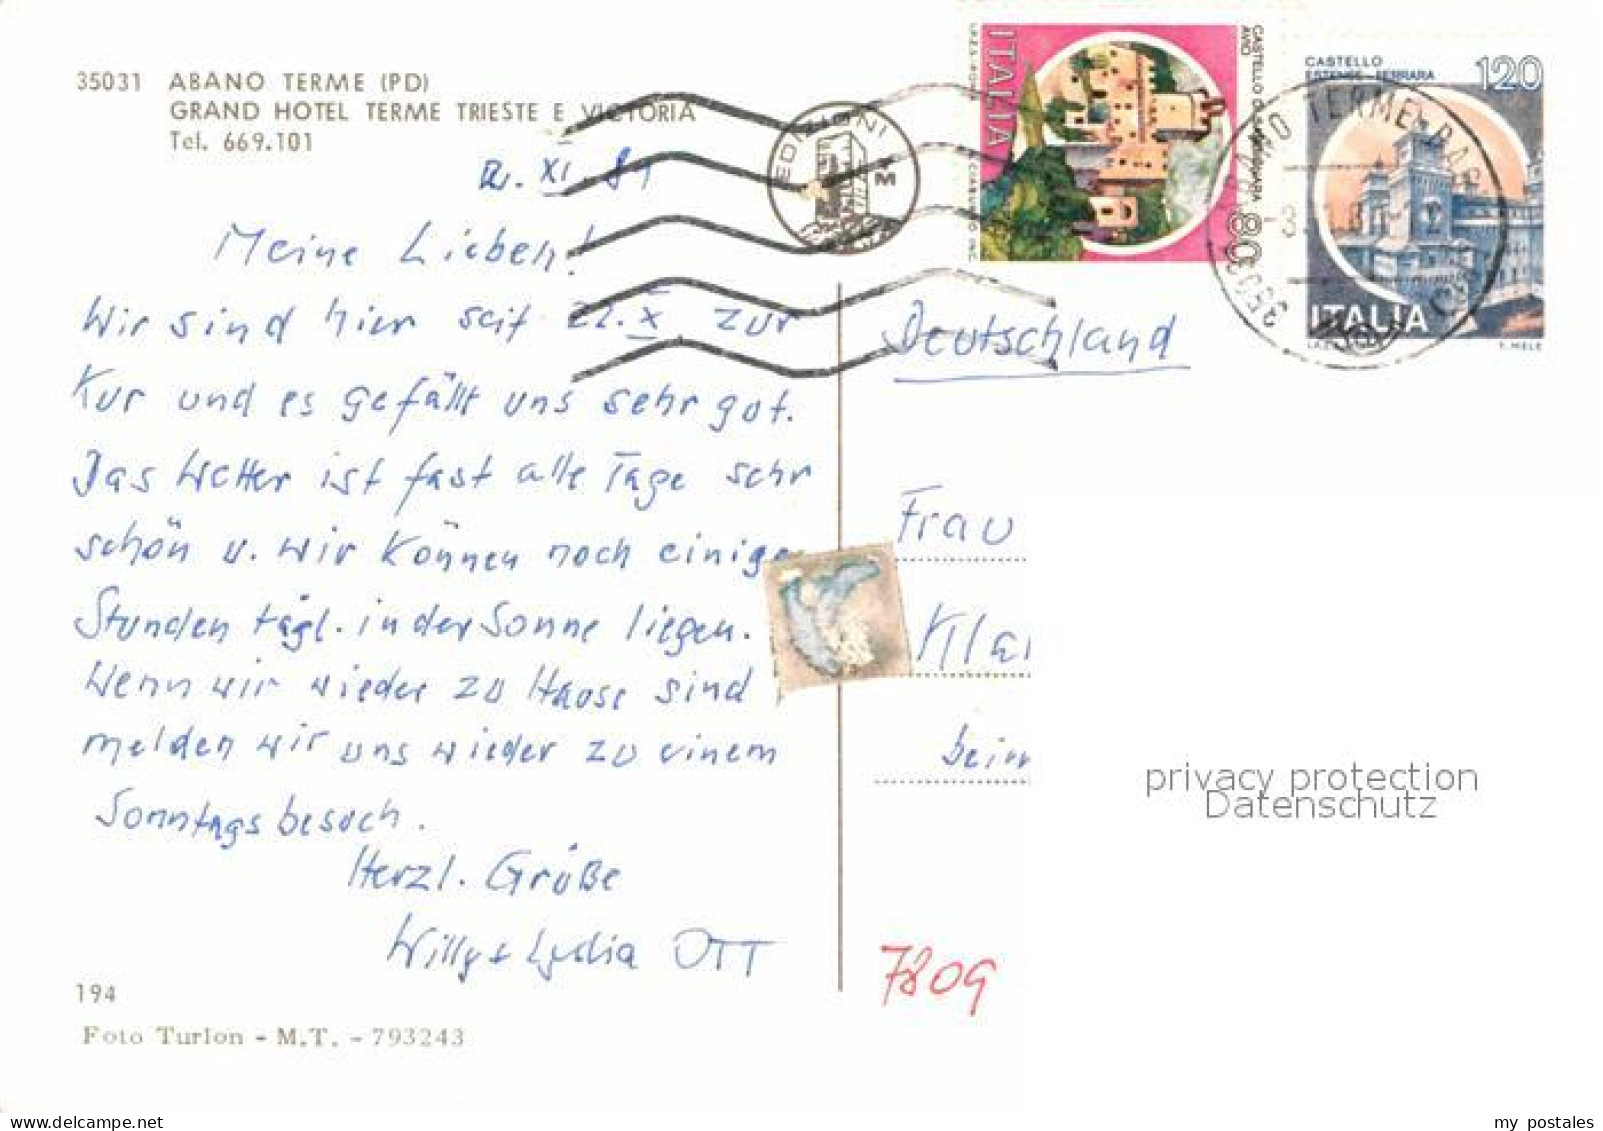 35031 ABANO TERME (PD)
GRAND HOTEL TERME TRIESTE E VICTORIA
Tel. 669.101
2. XI. 81
Meine Lieben!
Wir sind hier seit 22. X zur
Kur und es gefällt uns sehr gut.
Das Wetter ist fast alle Tage sehr
schön u. wir können noch einige
Stunden tägl. in der Sonne liegen.
Wenn wir wieder zu Hause sind
melden wir uns wieder zu einem
Sonntagsbesuch.
Herzl. Grüße
Willy + Lydia OTT
194
Foto Turlon - M.T. - 793243
EDIZIONI
M
ITALIA
80
CASTELLO
ESTENSE - FERRARA
120
ITALIA
F. MELE
TERME
Deutschland
Frau
Klar
beim
privacy protection
Datenschutz
7809
www.delcampe.net
my_postales